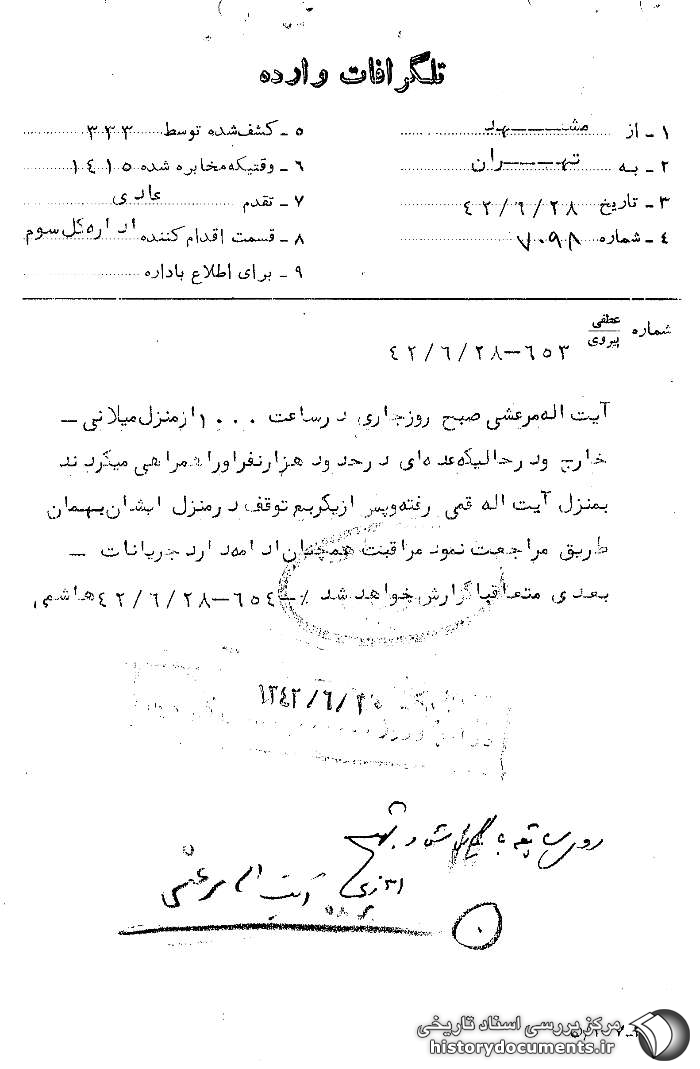 تلگرافات وارده
۱ - از مشهد
۲ - به تهران
۳ - تاریخ ۴۲/۶/۲۸
۴ - شماره ۷۰۹۸
۵ - کشف شده توسط ۳۳۳
۶ - وقتیکه مخابره شده ۱۴۱۵
۷ - تقدم عادی
۸ - قسمت اقدام کننده اداره کل سوم
۹ - برای اطلاع باداره
شماره عطفی
پیروی
۶۵۳-۴۲/۶/۲۸
آیت اله مرعشی صبح روزجاری درساعت ۱۰۰۰ ازمنزل میلانی -
خارج ودرحالیکه عده ای درحدود هزارنفراوراهمراهی میکردند
بمنزل آیت اله قمی رفته وپس ازیکربع توقف درمنزل ایشان بهمان
طریق مراجعت نمود مراقبت همچنان ادامه دارد جریانات -
بعدی متعاقبا گزارش خواهد شد ٪-۶۵۴-۴۲/۶/۲۸ هاشمی
۱۳۴۲/۶/۳۰
آیت اله مرعشی
مرکز بررسی اسناد تاریخی
historydocuments.ir